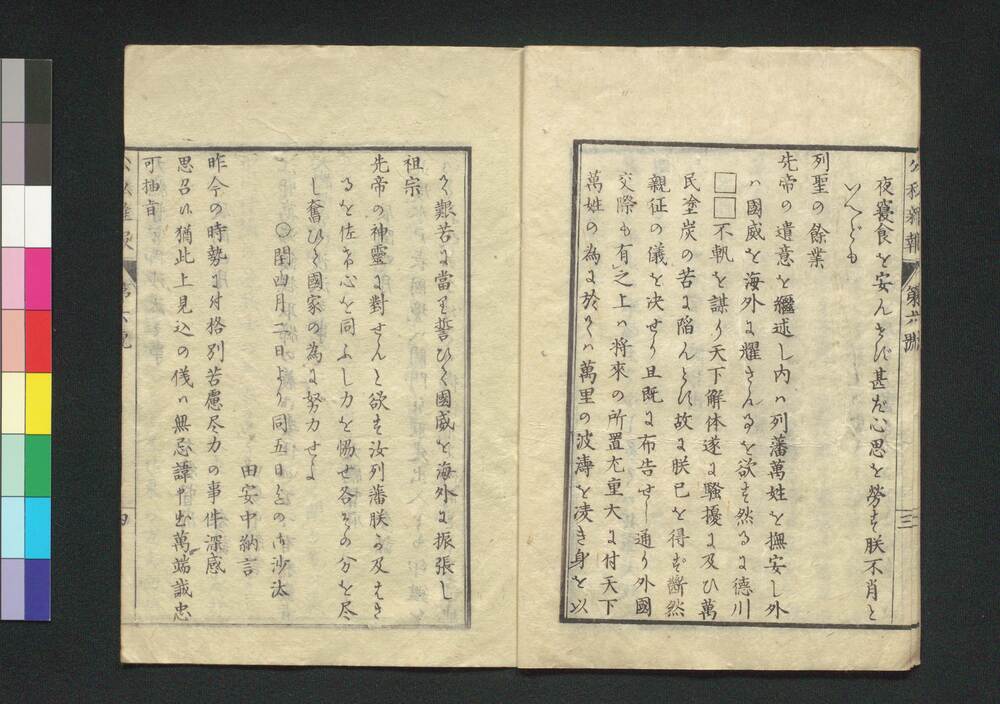 公私雑報 第六號 三
夜寝食を安んせず甚だ心思を勞す朕不肖と
いへども
列聖の餘業
先帝の遺意を繼述し内ハ列藩萬姓を撫安し外
ハ國威を海外に耀さんことを欲す然るに德川
□□不軌を謀り天下解体遂に騒擾に及ひ萬
民塗炭の苦に陥んとす故に朕已を得ず斷然
親征の儀を決せり且既に布告せし通り外國
交際も有之上ハ將來の所置尤重大に付天下
萬姓の為に於てハ萬里の波濤を凌き身を以
て艱苦に當り誓ひて國威を海外に振張し
祖宗
先帝の神靈に對せんと欲す汝列藩朕か及はさ
るを佐け心を同ふし力を協せ各その分を尽
し奮ひて國家の為に努力せよ
○閏四月二日より同五日までの御沙汰
田安中納言
昨今の時勢に付格別苦慮尽力の事件深感
思召候猶此上見込の儀ハ無忌諱申出萬端誠忠
可抽旨
第六號 四